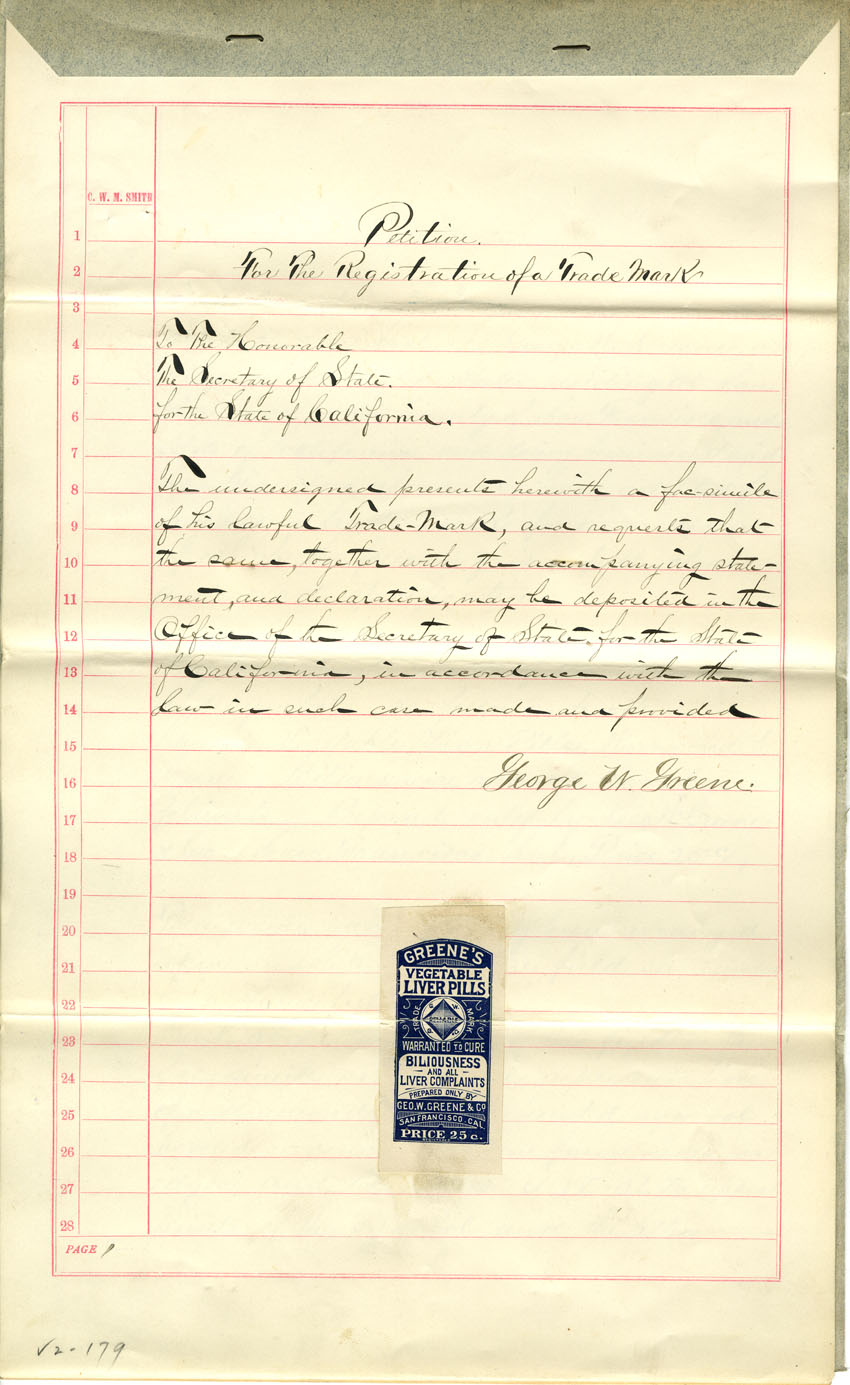 C. W. M. SMITH
1 Petition.
2 For The Registration of a Trade Mark
3
4 To The Honorable
5 The Secretary of State.
6 for the State of California.
7
8 The undersigned presents herewith a fac-simile
9 of his lawful Trade-Mark, and requests that
10 the same, together with the accompanying state-
11 ment, and declaration, may be deposited in the
12 Office of the Secretary of State for the State
13 of California, in accordance with the
14 law in such case made and provided
15
16 George W. Greene.
17
18
19
20
21
22
23
24
25
26
27
28
GREENE'S
VEGETABLE
LIVER PILLS
TRADE MARK
RELIABLE
WARRANTED TO CURE
BILIOUSNESS
AND ALL
LIVER COMPLAINTS
PREPARED ONLY BY
GEO. W. GREENE & CO
SAN FRANCISCO, CAL
PRICE 25 c.
PAGE 1
V2-179